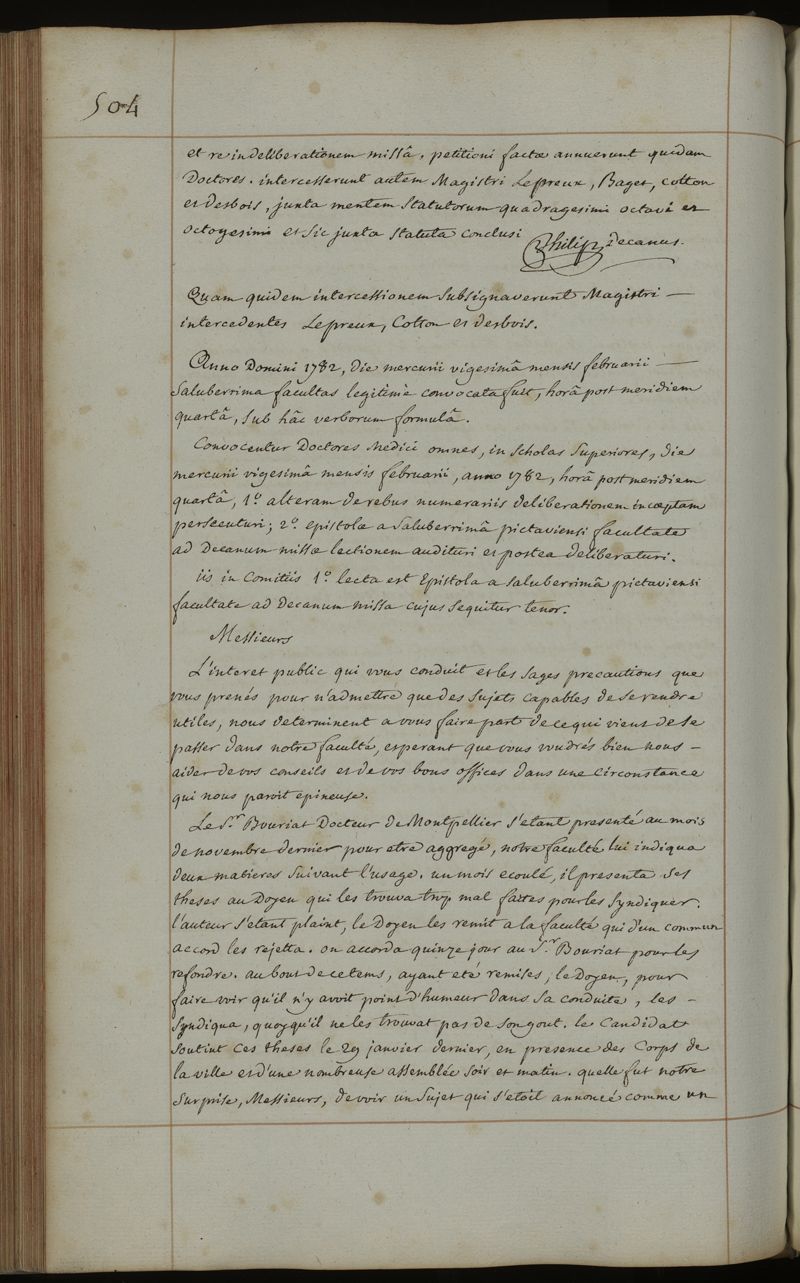 504
et re in deliberationem missâ, petitioni factæ annuerunt quidam
Doctores. intercesserunt autem Magistri Lepreux, Baget, Cotton
et desbois, juxta mentem Statutorum quadragesimi octavi et
octogesimi et sic juxta Statuta conclusi
Philip, Decanus.
Quam quidem intercessionem Subsignaverunt Magistri —
intercedentes Lepreux, Cotton et desbois.
Anno Domini 1782, die mercurii vigesimâ mensis februarii —
Saluberrima facultas legitimè convocata fuit, horâ post meridiem
quartâ, Sub hâc verborum formulâ.
Convocentur Doctores Medici omnes, in Scholas Superiores, die
mercurii vigesimâ mensis februarii, anno 1782, horâ post meridiem
quartâ, 1.º alteram de rebus numerariis deliberationem inceptam
persecuturi; 2.º epistolæ a Saluberrimâ pictaviensi facultate
ad Decanum missæ lectionem audituri et postea deliberaturi.
iis in Comitiis 1.º lecta est Epistola a Saluberrimâ pictaviensi
facultate ad Decanum missa cujus Sequitur tenor.
Messieurs
L'interet public qui vous conduit et les Sages precautions que
vous prenés pour n'admettre que des Sujets capables de se rendre
utiles, nous determinent a vous faire part de ce qui vient de se
passer dans notre faculté, esperant que vous voudrés bien nous –
aider de vos conseils et de vos bons offices dans une circonstance
qui nous paroit epineuse.
Le S.r Bouriat Docteur de Montpellier s'etant presenté au mois
de novembre dernier pour etre aggregé, notre faculté lui indiqua
deux matieres Suivant l'usage. un mois ecoulé, il presenta Ses
theses au Doyen qui les trouva trop mal faites pour les Syndiquer.
l'auteur s'etant plaint, le Doyen les remit a la faculté qui d'un commun
accord les rejetta. on accorda quinze jour au S.r Bouriat pour les
refondre. au bout de ce tems, ayant eté remises, le Doyen, pour
faire voir qu'il n'y avoit point d'humeur dans Sa conduite, les –
Syndiqua, quoyqu'il ne les trouvat pas de son gout. le Candidat
Soutint ces theses le 29 janvier dernier, en presence des Corps de
la ville et d'une nombreuse assemblée soir et matin. quelle fut notre
Surprise, Messieurs, de voir un Sujet qui s'etoit annoncé comme un